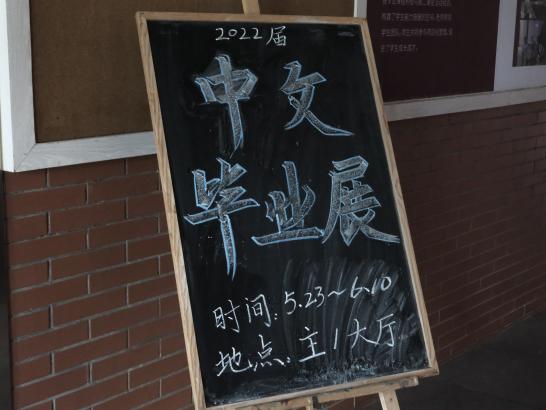 2022届
中文
毕业展
时间:5.23~6.10
地点:主1大厅